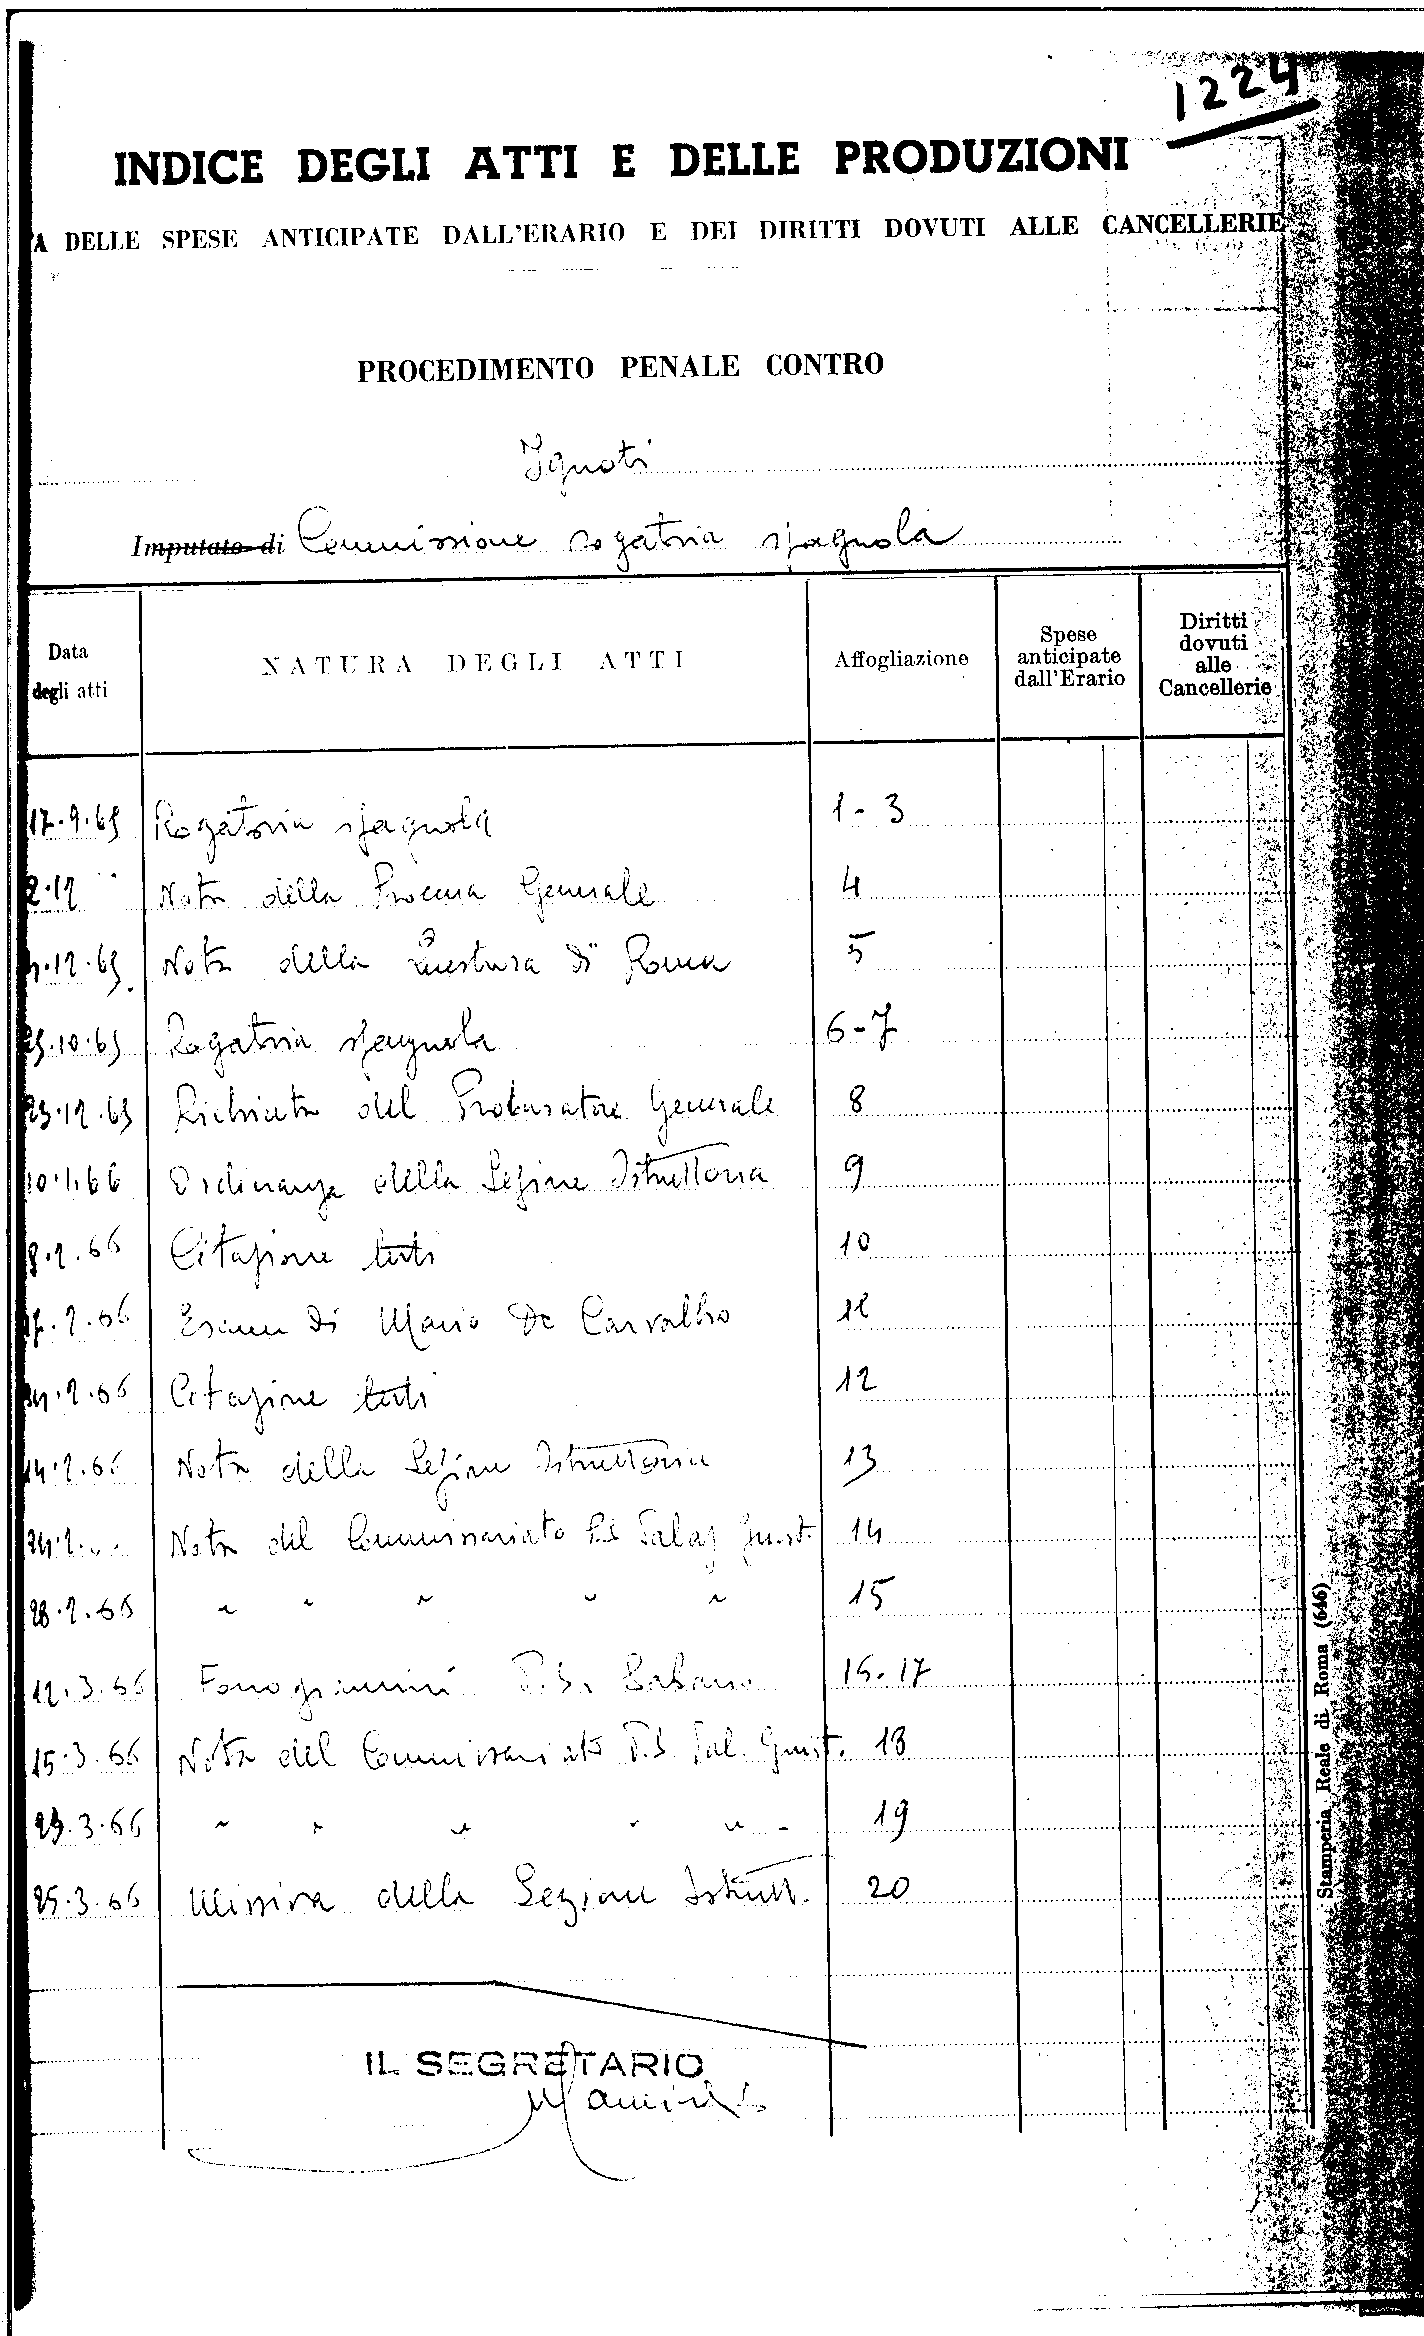 1224
INDICE DEGLI ATTI E DELLE PRODUZIONI
A DELLE SPESE ANTICIPATE DALL'ERARIO E DEI DIRITTI DOVUTI ALLE CANCELLERIE
PROCEDIMENTO PENALE CONTRO
Ignoti
Imputato di Commissione rogatoria spagnola
Data degli atti NATURA DEGLI ATTI Affogliazione Spese anticipate dall'Erario Diritti dovuti alle Cancellerie
17.9.65 Rogatoria spagnola 1-3
2.12 " Nota della Procura Generale 4
.12.65 Nota della Questura di Roma 5
25.10.65 Rogatoria spagnola 6-7
23.12.65 Richiesta del Procuratore Generale 8
10.1.66 Ordinanza della Sezione Istruttoria 9
8.2.66 Citazione testi 10
.2.66 Esame di Mario De Carvalho 11
.2.66 Citazione testi 12
14.2.66 Nota della Sezione Istruttoria 13
24.2. Nota del Commissariato P.S. Palaz Giust. 14
28.2.66 " " " " " 15
12.3.66 Fonogrammi P.S. 16-17
15.3.66 Nota del Commissariato P.S. Pal. Giust. 18
23.3.66 " " " " " 19
25.3.66 Missiva della Sezione Istrutt. 20
IL SEGRETARIO
Stamperia Reale di Roma (646)